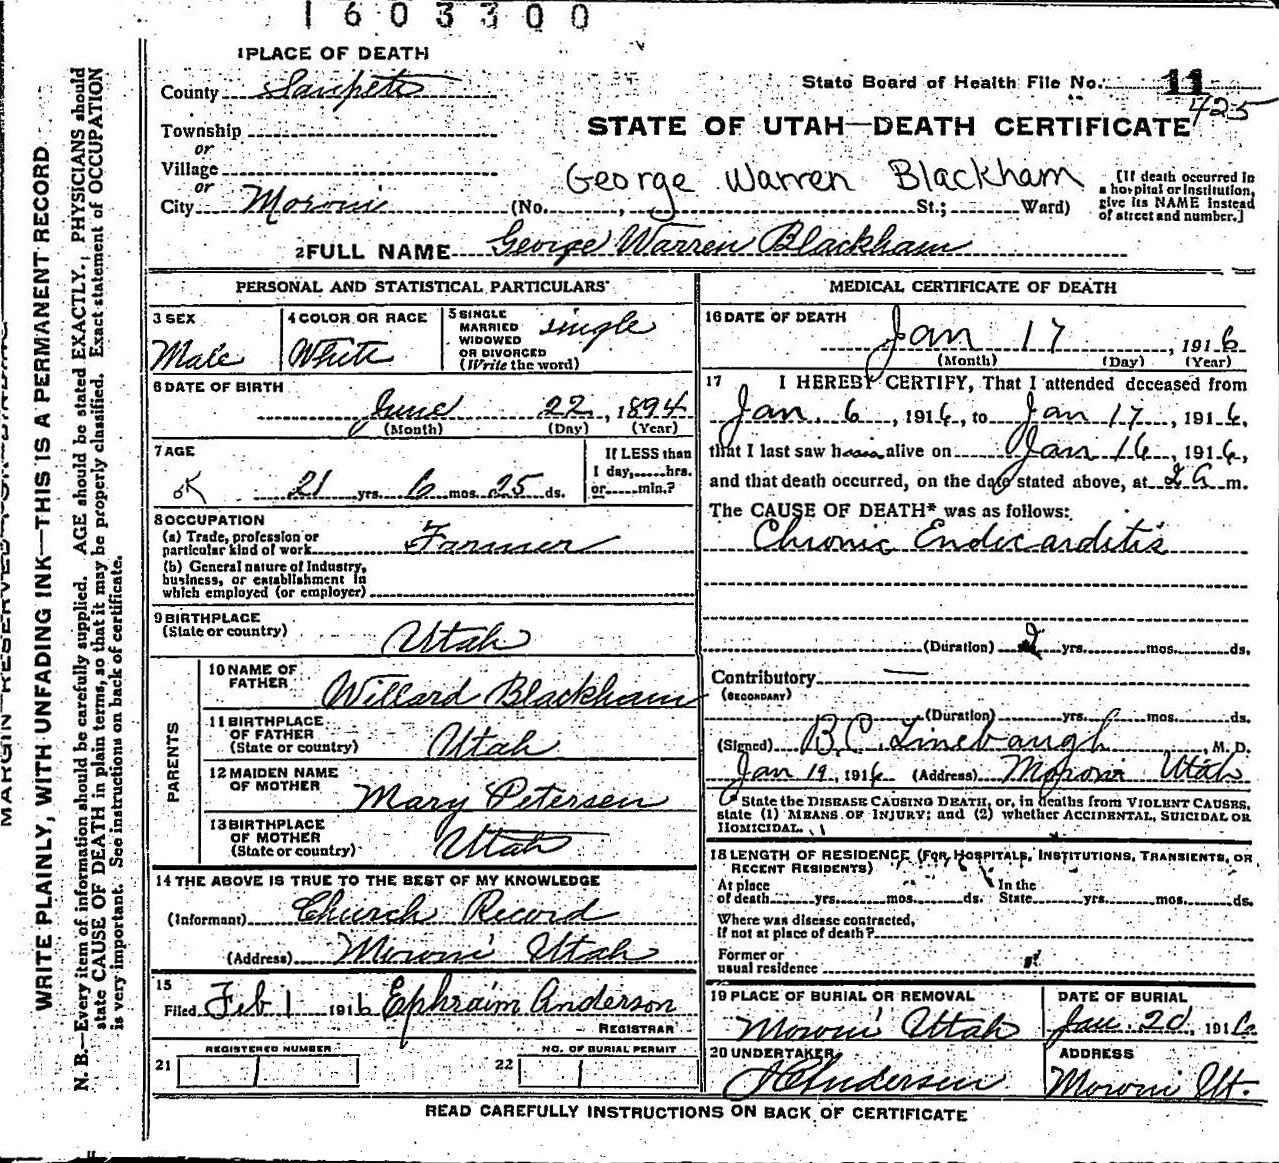 1603300
1 PLACE OF DEATH
County Sanpete
State Board of Health File No. 11
425
Township
or
Village
or
City Moroni
STATE OF UTAH—DEATH CERTIFICATE
George Warren Blackham
(No. , St.; Ward)
[If death occurred in
a hospital or institution,
give its NAME instead
of street and number.]
2 FULL NAME George Warren Blackham
PERSONAL AND STATISTICAL PARTICULARS
3 SEX
Male
4 COLOR OR RACE
White
5 SINGLE
MARRIED
WIDOWED
OR DIVORCED
(Write the word)
single
6 DATE OF BIRTH
June 22, 1894
(Month) (Day) (Year)
7 AGE
OK 21 yrs. 6 mos. 25 ds.
If LESS than
1 day,.....hrs.
or.....min.?
8 OCCUPATION
(a) Trade, profession or
particular kind of work Farmer
(b) General nature of Industry,
business, or establishment in
which employed (or employer)
9 BIRTHPLACE
(State or country) Utah
PARENTS
10 NAME OF
FATHER Willard Blackham
11 BIRTHPLACE
OF FATHER
(State or country) Utah
12 MAIDEN NAME
OF MOTHER Mary Petersen
13 BIRTHPLACE
OF MOTHER
(State or country) Utah
14 THE ABOVE IS TRUE TO THE BEST OF MY KNOWLEDGE
(Informant) Church Record
(Address) Moroni Utah
15
Filed Feb 1 1916 Ephraim Anderson
REGISTRAR
REGISTERED NUMBER
21
NO. OF BURIAL PERMIT
22
MEDICAL CERTIFICATE OF DEATH
16 DATE OF DEATH
Jan 17, 1916
(Month) (Day) (Year)
17 I HEREBY CERTIFY, That I attended deceased from
Jan 6, 1916, to Jan 17, 1916,
that I last saw h alive on Jan 16, 1916,
and that death occurred, on the date stated above, at 2 A m.
The CAUSE OF DEATH* was as follows:
Chronic Endicarditis
(Duration) 2 yrs. mos. ds.
Contributory —
(SECONDARY)
(Duration) yrs. mos. ds.
(Signed) B.C. Linebaugh, M. D.
Jan 19, 1916 (Address) Moroni Utah
* State the DISEASE CAUSING DEATH, or, in deaths from VIOLENT CAUSES,
state (1) MEANS OF INJURY; and (2) whether ACCIDENTAL, SUICIDAL OR
HOMICIDAL.
18 LENGTH OF RESIDENCE (FOR HOSPITALS, INSTITUTIONS, TRANSIENTS, OR
RECENT RESIDENTS)
At place
of death yrs. mos. ds.
In the
State yrs. mos. ds.
Where was disease contracted,
if not at place of death?
Former or
usual residence
19 PLACE OF BURIAL OR REMOVAL
Moroni Utah
DATE OF BURIAL
Jan. 20, 1916
20 UNDERTAKER
Andersen
ADDRESS
Moroni Ut.
READ CAREFULLY INSTRUCTIONS ON BACK OF CERTIFICATE
WRITE PLAINLY, WITH UNFADING INK—THIS IS A PERMANENT RECORD
N. B.—Every item of information should be carefully supplied. AGE should be stated EXACTLY. PHYSICIANS should
state CAUSE OF DEATH in plain terms, so that it may be properly classified. Exact statement of OCCUPATION
is very important. See instructions on back of certificate.